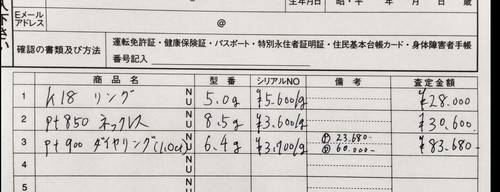 入下さい
Eメール
アドレス
@
生年月日
昭・平 年 月 日 歳
確認の書類及び方法
運転免許証・健康保険証・パスポート・特別永住者証明証・住民基本台帳カード・身体障害者手帳
番号記入
商品名 型番 シリアルNO 備考 査定金額
1 K18 リング N U 5.0g ¥5.600/g ¥28.000
2 pt850 ネックレス N U 8.5g ¥3.600/g ¥30.600
3 pt900 ダイヤリング(1.0ct) N U 6.4g ¥3.700/g Ⓟ 23.680- Ⓓ 60.000- ¥83.680
4 N U
5 N